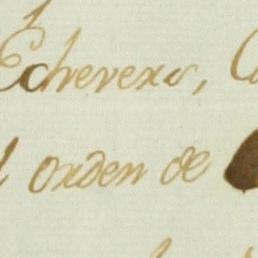 Echeverz, C
l orden de